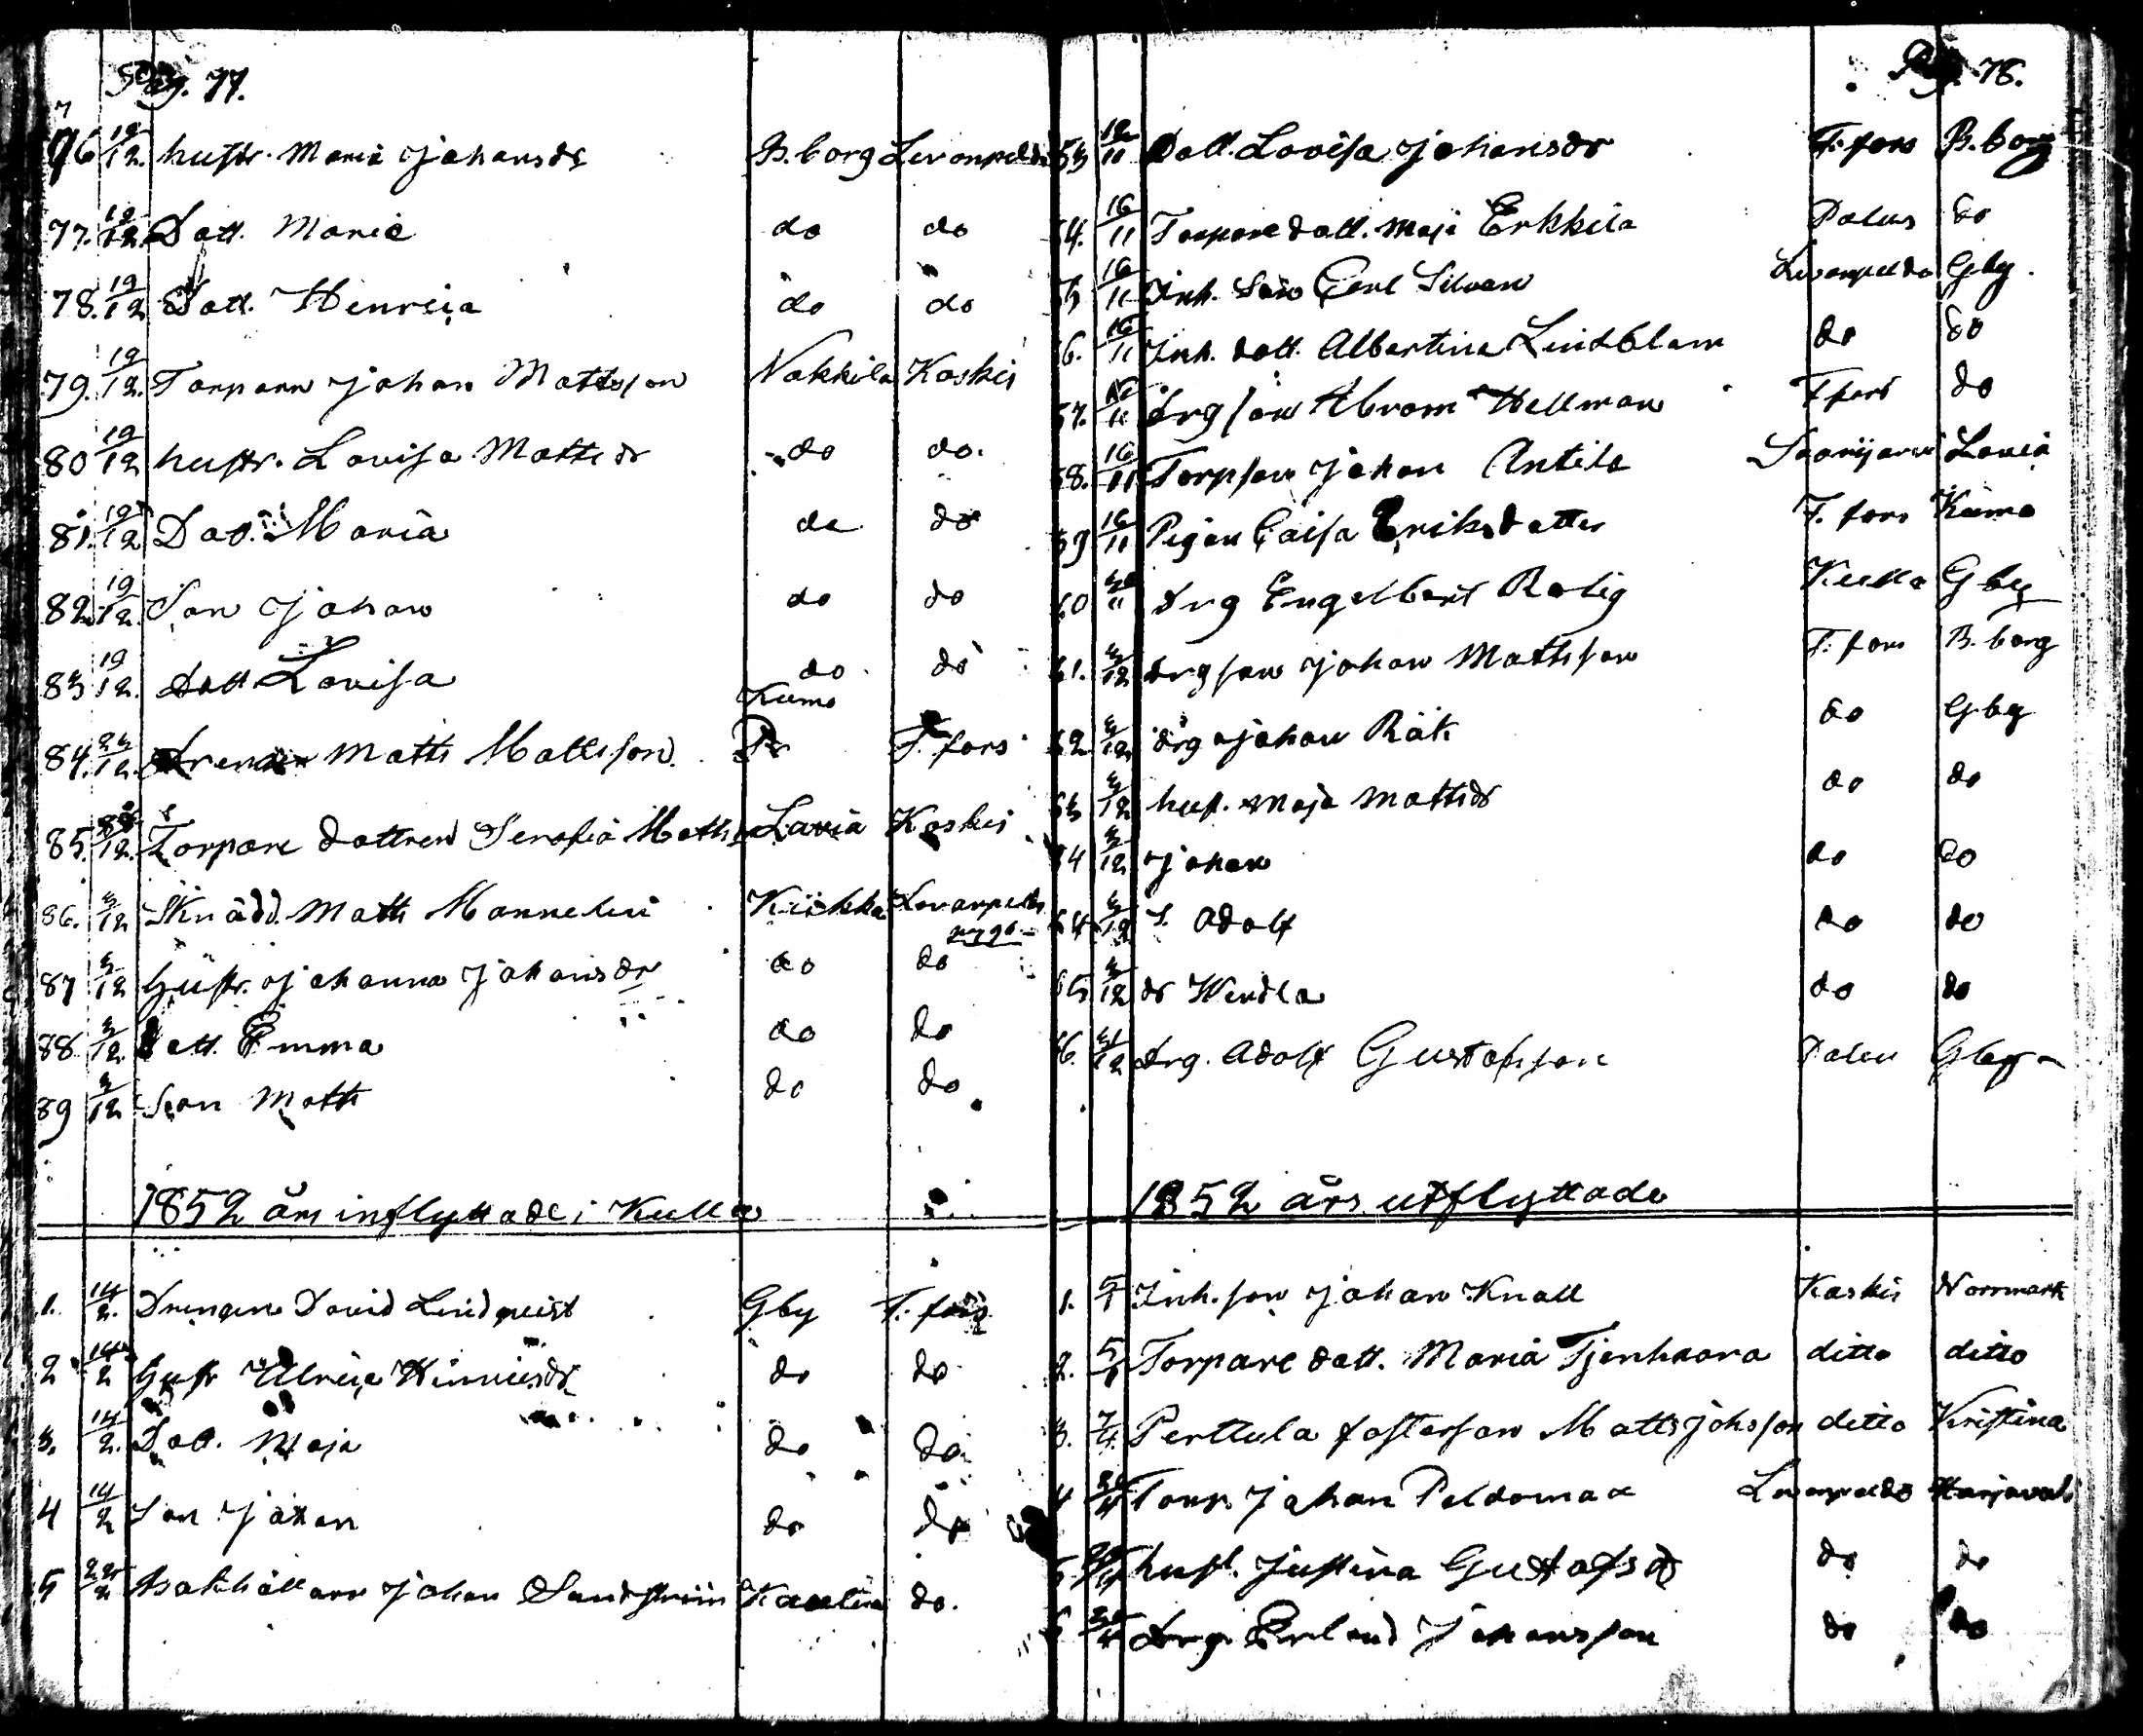 Pag. 77.
76 19/12. hustr. Maria Johansdr B.borg Levanpelda
77. 19/12 Dott. Maria do do
78. 19/12 Dott. Henrica do do
79. 19/12. Torparn Johan Mattsson Nakkila Koskis
80 19/12 hustr. Lovisa Mattsdr do do.
81. 19/12 Dot. Maria do do
82. 19/12. Son Johan do do
83 19/12. Dott Lovisa do do
Kumo
84. 12. Drengen Matts Mattsson. F. fors
85. 12. Torpare dottren Serafia Matts Lavia Koskis
86. 3/12 Skrädd. Matts Mannelin Kiikka Levanpelto
nygd.
87 3/12 Hustr. Johanna Johansdr do do
88 3/12. Dott. Emma do do
89 3/12 Son Matts do do
1852 års inflyttade i Kulla
1. 14/2. Drengen David Lindqvist Gby F. fors
2 14/2 Hustr Ulrica Henricsdr do do
3. 14/2. Dott. Maja do do.
4 14/2 Son Johan do do
5 22/2 Bakhållare Johan Sandström Kautua do.
Pag. 78.
53 12/11 Dott. Lovisa Johansdr F. fors B. borg
54. 16/11 Torpare dott. Maja Erkkila Palus do
55 16/11 Inh. Son Carl Silvan Levanpelda Gby.
56. 16/11 Inh. dott. Albertina Lindblam do do
57. 16/11 drg son Abram Hellman F fors do
58. 16/11 Torpson Johan Antila Saarijarvi Lavia
59 16/11 Pigan Caisa Eriksdotter F. fors Kumo
60 30/11 drg Engelbert Rolig Kulla Gby
61. 3/12 drg son Johan Mattsson F. fors B. borg
62 3/12 drg Johan Räk do Gby
63 3/12 hust. Maja Mattsdr do do
64 3/12 Johan do do
64 3/12 S. Adolf do do
65 3/12 dr Wendla do do
66. 31/12 Drg. Adolf Gustafsson Palus Gby
1852 års utflyttade
1. 5/1 Inh. son Johan Knall Koskis Norrmark
2. 5/1 Torpare dott. Maria Tjenhaara ditto ditto
3. 7/4. Perttula fosterson Matts Johsson ditto Kristina
4 Torp. Johan Peldomaa Levanpeldo Harjavalt
5 hust. Justina Gustafsd do do
6 Drg. Erland Johansson do do